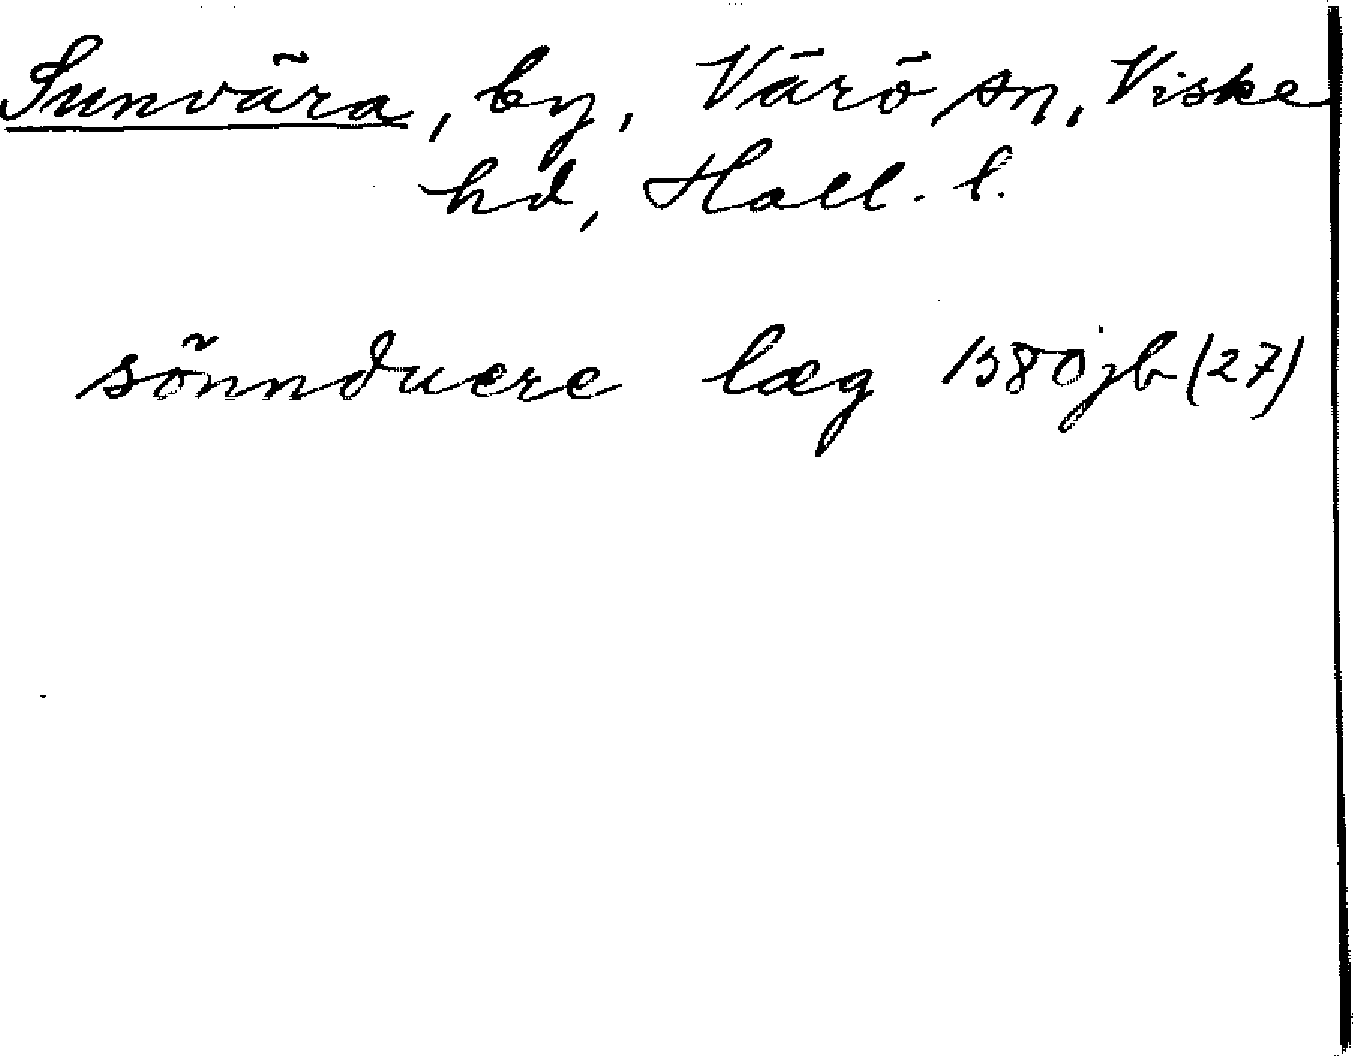 Sunvära, by, Värö sn, Viske
hd, Hall. l.
sönnduere læg 1580 jb (27)